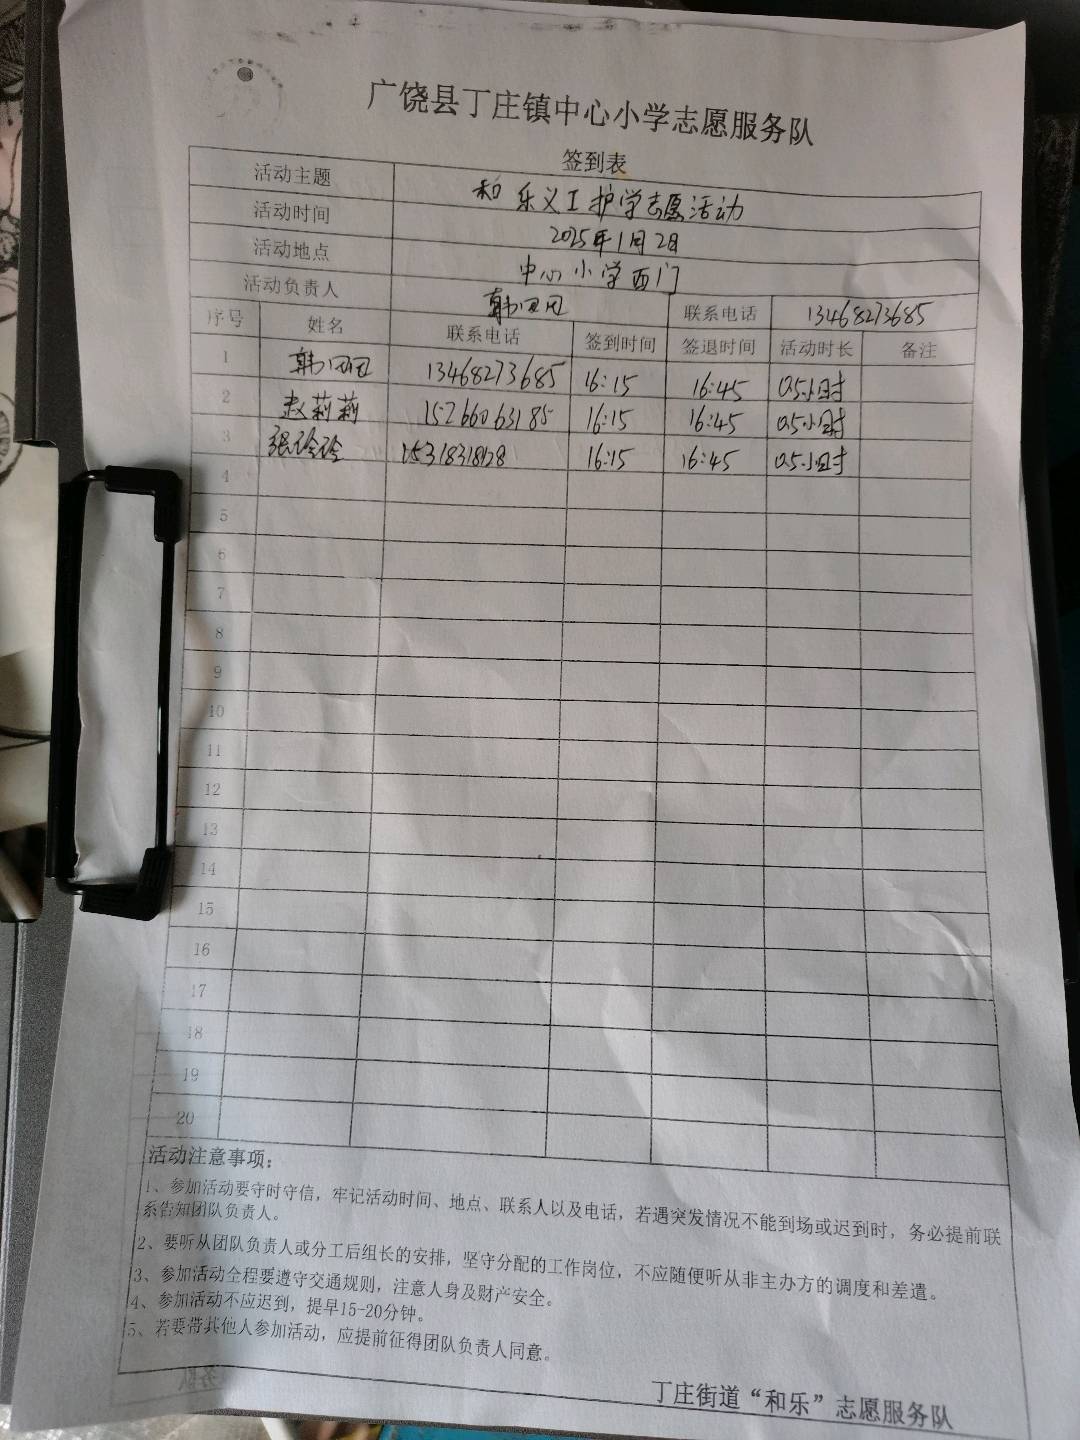 广饶县丁庄镇中心小学志愿服务队
签到表
活动主题 和乐义工护学志愿活动
活动时间 2025年1月2日
活动地点 中心小学西门
活动负责人 韩团团 联系电话 13468273685
序号 姓名 联系电话 签到时间 签退时间 活动时长 备注
1 韩团团 13468273685 16:15 16:45 0.5小时
2 赵莉莉 15266063185 16:15 16:45 0.5小时
3 张 16:15 16:45 0.5小时
4
5
6
7
8
9
10
11
12
13
14
15
16
17
18
19
20
活动注意事项：
1、参加活动要守时守信，牢记活动时间、地点、联系人以及电话，若遇突发情况不能到场或迟到时，务必提前联
系告知团队负责人。
2、要听从团队负责人或分工后组长的安排，坚守分配的工作岗位，不应随便听从非主办方的调度和差遣。
3、参加活动全程要遵守交通规则，注意人身及财产安全。
4、参加活动不应迟到，提早15-20分钟。
5、若要带其他人参加活动，应提前征得团队负责人同意。
丁庄街道“和乐”志愿服务队